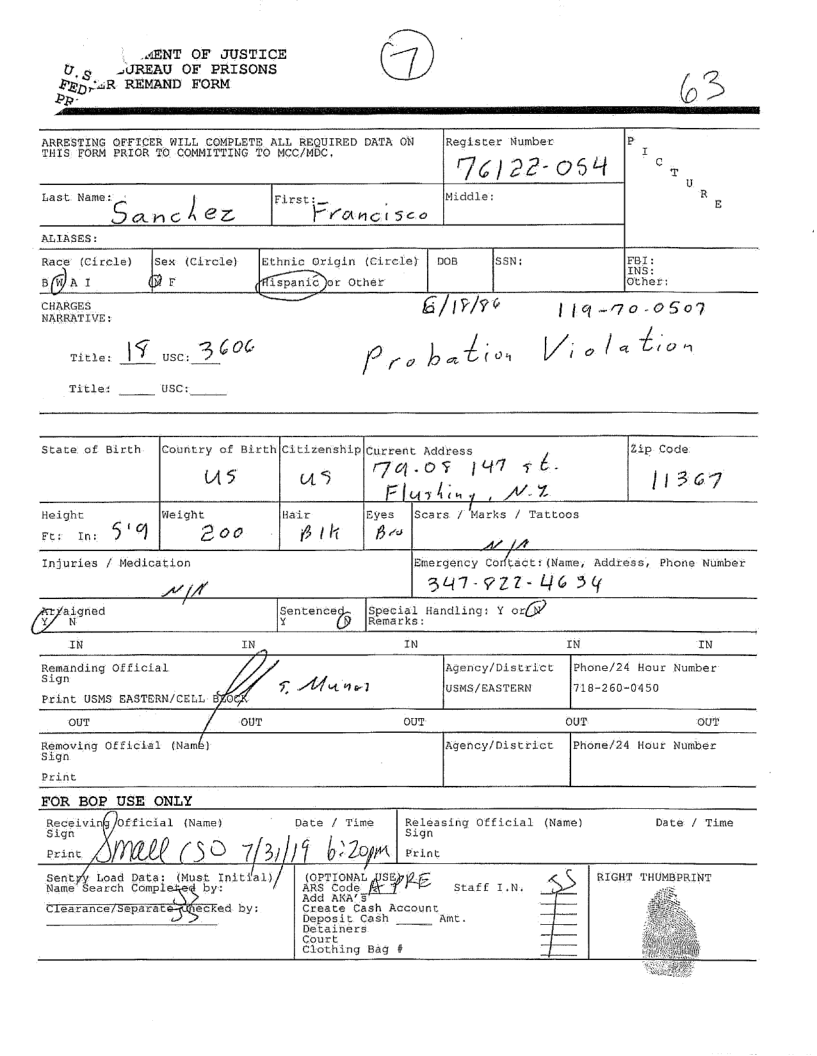 7
63
U.S. MENT OF JUSTICE
FED UREAU OF PRISONS
PR R REMAND FORM
ARRESTING OFFICER WILL COMPLETE ALL REQUIRED DATA ON
THIS FORM PRIOR TO COMMITTING TO MCC/MDC.
Register Number
76122-054
PICTURE
Last Name: Sanchez First: Francisco Middle:
ALIASES:
Race (Circle) Sex (Circle) Ethnic Origin (Circle) DOB SSN: FBI:
INS:
B W A I M F Hispanic or Other Other:
CHARGES
NARRATIVE:
6/18/86 119-70-0507
Title: 18 USC: 3606 Probation Violation
Title: USC:
State of Birth Country of Birth Citizenship Current Address Zip Code
US US 79-08 147 st. 11367
Flushing, N.Y
Height Weight Hair Eyes Scars / Marks / Tattoos
Ft: In: 5'9 200 Blk Bro N/A
Injuries / Medication Emergency Contact: (Name, Address, Phone Number
N/A 347-822-4634
Arraigned Sentenced Special Handling: Y or N
Y N Y N Remarks:
IN IN IN IN IN
Remanding Official Agency/District Phone/24 Hour Number
Sign
Print USMS EASTERN/CELL BLOCK USMS/EASTERN 718-260-0450
OUT OUT OUT OUT OUT
Removing Official (Name) Agency/District Phone/24 Hour Number
Sign
Print
FOR BOP USE ONLY
Receiving Official (Name) Date / Time Releasing Official (Name) Date / Time
Sign Sign
Print Small CSO 7/31/19 6:20pm Print
Sentry Load Data: (Must Initial)
Name Search Completed by:
Clearance/Separate Checked by:
(OPTIONAL USE)
ARS Code A-PRE Staff I.N. SS
Add AKA's
Create Cash Account
Deposit Cash Amt.
Detainers
Court
Clothing Bag #
RIGHT THUMBPRINT